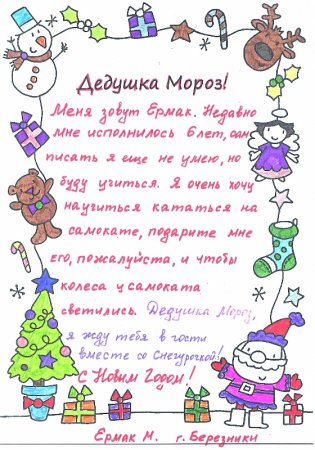 Дедушка Мороз!
Меня зовут Ермак. Недавно
мне исполнилось 6 лет, сам
писать я еще не умею, но
буду учиться. Я очень хочу
научиться кататься на
самокате, подарите мне
его, пожалуйста, и чтобы
колеса у самоката
светились. Дедушка Мороз,
я жду тебя в гости
вместе со Снегурочкой!
С Новым Годом!
Ермак М. г. Березники